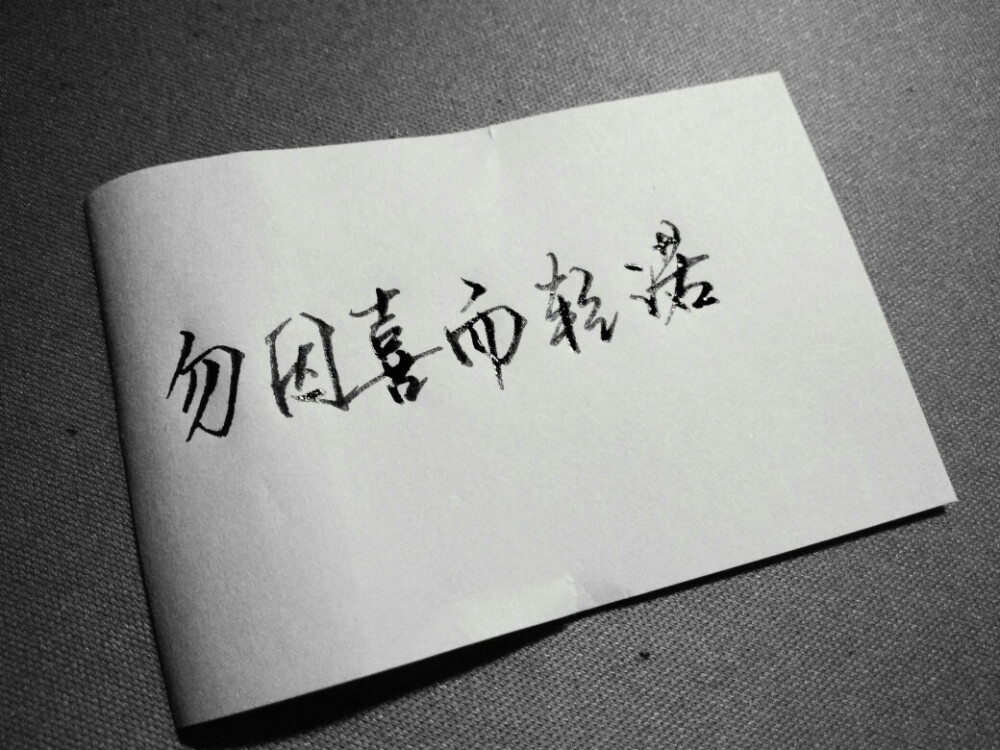 勿因喜而轻诺